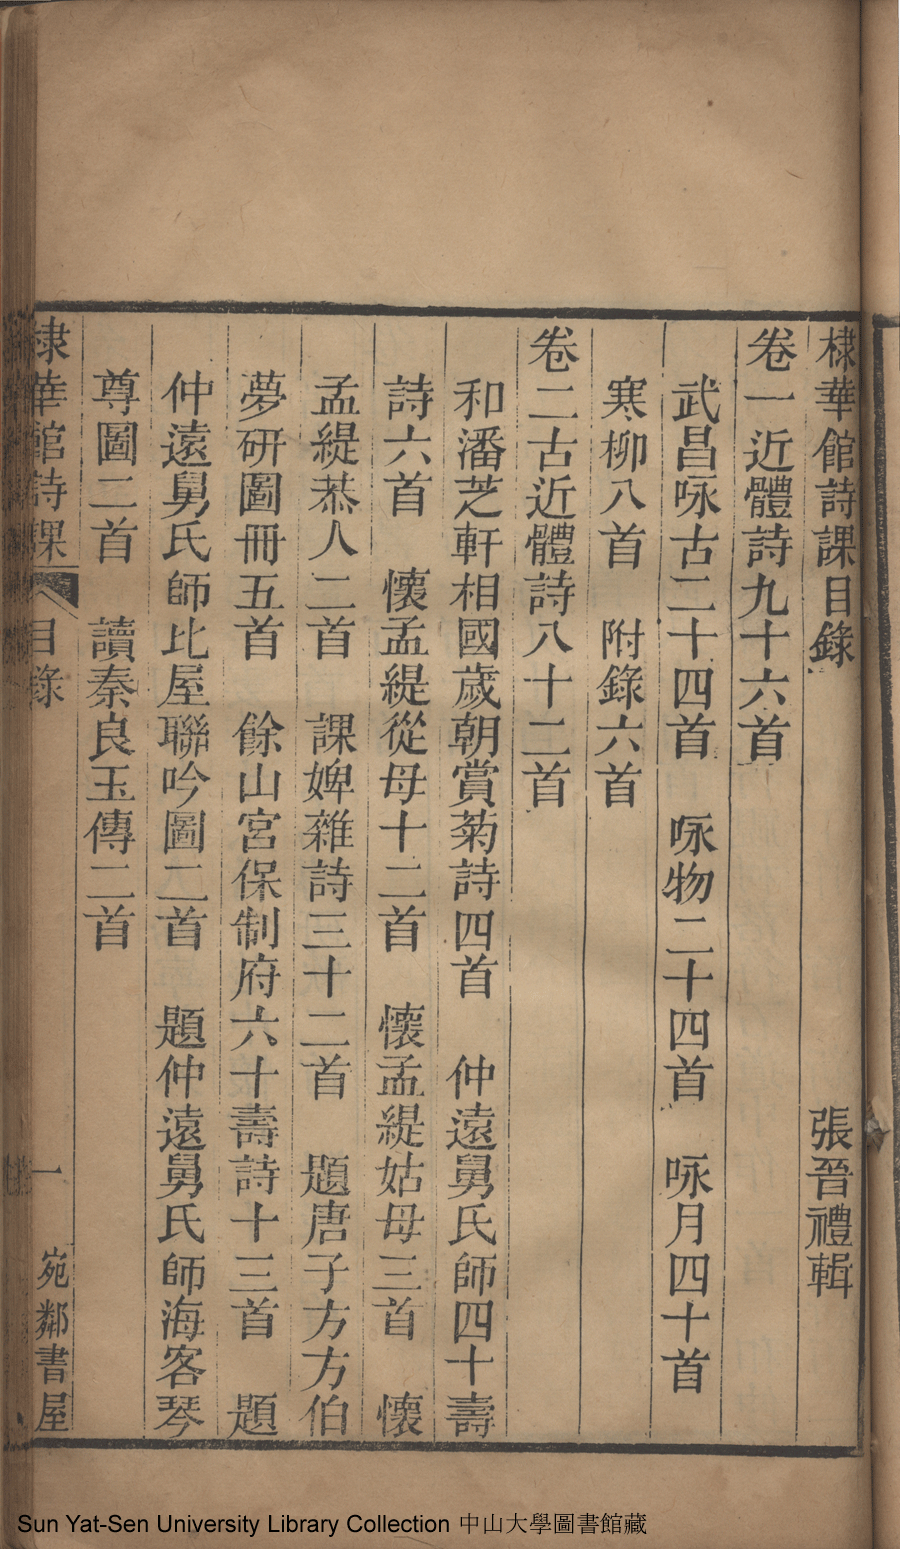 棣華館詩課目錄　張晉禮輯
卷一近體詩九十六首
武昌咏古二十四首　咏物二十四首　咏月四十首
寒柳八首　附錄六首
卷二古近體詩八十二首
和潘芝軒相國歲朝賞菊詩四首　仲遠舅氏師四十壽
詩六首　懷孟緹從母十二首　懷孟緹姑母三首　懷
孟緹恭人二首　課婢雜詩三十二首　題唐子方方伯
夢研圖冊五首　餘山宮保制府六十壽詩十三首　題
仲遠舅氏師比屋聯吟圖二首　題仲遠舅氏師海客琴
尊圖二首　讀秦良玉傳二首
棣華館詩課　目錄　一　宛鄰書屋
Sun Yat-Sen University Library Collection 中山大學圖書館藏